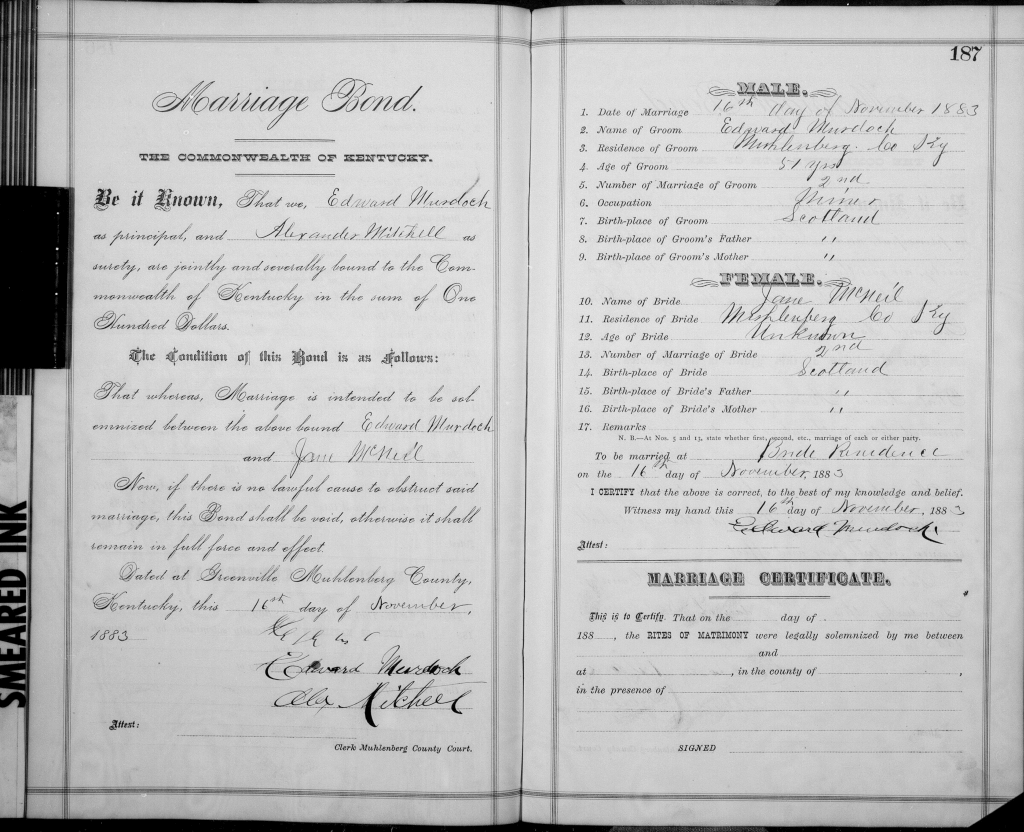 Marriage Bond.
THE COMMONWEALTH OF KENTUCKY.
Be it Known, That we, Edward Murdoch
as principal, and Alexander Mitchell as
surety, are jointly and severally bound to the Com-
monwealth of Kentucky in the sum of One
Hundred Dollars.
The Condition of this Bond is as Follows:
That whereas, Marriage is intended to be sol-
emnized between the above bound Edward Murdoch
and Jane McNeil
Now, if there is no lawful cause to obstruct said
marriage, this Bond shall be void, otherwise it shall
remain in full force and effect.
Dated at Greenville Muhlenberg County,
Kentucky, this 16th day of November,
1883
Edward Murdoch
Alex Mitchell
Attest:
Clerk Muhlenberg County Court.
SMEARED INK
187
MALE.
1. Date of Marriage 16th day of November 1883
2. Name of Groom Edward Murdoch
3. Residence of Groom Muhlenberg Co Ky
4. Age of Groom 51 yrs
5. Number of Marriage of Groom 2nd
6. Occupation Miner
7. Birth-place of Groom Scotland
8. Birth-place of Groom's Father "
9. Birth-place of Groom's Mother "
FEMALE.
10. Name of Bride Jane McNeil
11. Residence of Bride Muhlenberg Co Ky
12. Age of Bride Unknown
13. Number of Marriage of Bride 2nd
14. Birth-place of Bride Scotland
15. Birth-place of Bride's Father "
16. Birth-place of Bride's Mother "
17. Remarks
N. B.—At Nos. 5 and 13, state whether first, second, etc., marriage of each or either party.
To be married at Bride Residence
on the 16th day of November, 1883
I CERTIFY that the above is correct, to the best of my knowledge and belief.
Witness my hand this 16th day of November, 1883
Edward Murdock
Attest:
MARRIAGE CERTIFICATE.
This is to Certify, That on the day of
188 , the RITES OF MATRIMONY were legally solemnized by me between
and
at , in the county of ,
in the presence of
SIGNED